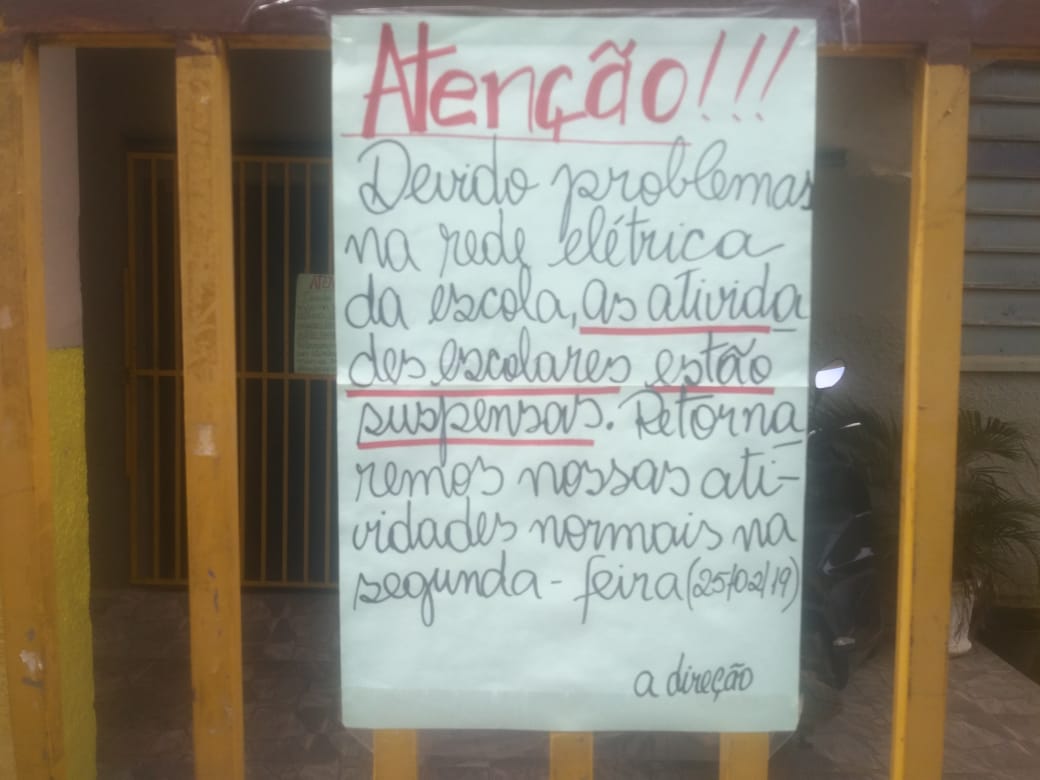 Atenção!!!
Devido problemas
na rede elétrica
da escola, as ativida
des escolares estão
suspensas. Retorna
remos nossas ati-
vidades normais na
segunda-feira (25/02/19)
a direção